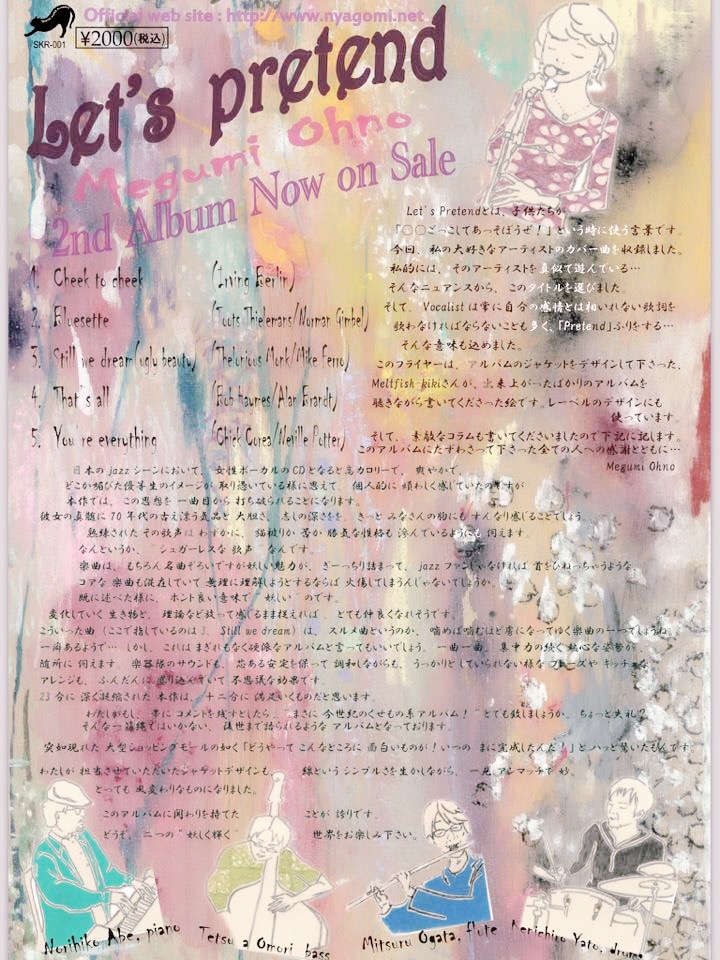 Official web site : http://www.nyagomi.net
SKR-001
¥2000(税込)
Let's pretend
Megumi Ohno
2nd Album Now on Sale
1. Cheek to cheek (Irving Berlin)
2. Bluesette (Toots Thielemans/Norman Gimbel)
3. Still we dream(ugly beauty) (Thelonious Monk/Mike Ferro)
4. That's all (Bob haymes/Alan Brandt)
5. You're everything (Chick Corea/Neville Potter)
Let's Pretendとは、子供たちが
「〇〇ごっこしてあっそぼうぜ！」という時に使う言葉です。
今回、私の大好きなアーティストのカバー曲を収録しました。
私的には、そのアーティストを真似て遊んでいる…
そんなニュアンスから、このタイトルを選びました。
そして、Vocalistは常に自分の感情とは相いれない歌詞を
歌わなければならないことも多く、「Pretend」ふりをする…
そんな意味も込めました。
このフライヤーは、アルバムのジャケットをデザインして下さった、
Meltfish-kikiさんが、出来上がったばかりのアルバムを
聴きながら書いてくださった絵です。レーベルのデザインにも
使っています。
そして、素敵なコラムも書いてくださいましたので下記に記します。
このアルバムにたずさわって下さった全ての人への感謝とともに…
Megumi Ohno
日本のjazzシーンにおいて、女性ボーカルのCDとなると高カロリーで、爽やかで、
どこか媚びた優等生のイメージが取り憑いている様に思えて、個人的に煩わしく感じていたのですが
本作では、この思想を一曲目から打ち破られることになります。
彼女の真髄に70年代の古え漂う気品と大胆さ、志しの深さをも、きっとみなさんの胸にもすんなり感じることでしょう。
熟練されたその歌声はわずかに、猫被りか否か勝気な性格も浮んでいるようにも伺えます。
なんというか、"シュガーレスな歌声"なんです。
楽曲は、もちろん名曲ぞろいですが妖しい魅力が、ぎーっちり詰まって、jazzファンじゃなければ首をひねっちゃうような、
コアな楽曲も混在していて無理に理解しようとするならば火傷してしまうんじゃないでしょうか。
既に述べた様に、ホント良い意味で"妖しい"のです。
変化していく生き物と、理論など放って感じるまま捉えればとても仲良くなれそうです。
こういった曲(ここで指しているのは3、Still we dream)は、スルメ曲というのか、噛めば噛むほど虜になってゆく楽曲の一つでしょうね
一癖あるようで…しかし、これはまぎれもなく硬派なアルバムと言ってもいいでしょう。一曲一曲、集中力の続く妖心な姿勢が
随所に伺えます。楽器隊のサウンドも、芯ある安定を保って調和しながらも、うっかりどしていられない様なフレーズやキッチュな
アレンジも、ふんだんに盛り込んでいて不思議な効果です。
23分に深く凝縮された本作は、十二分に満足いくものだと思います。
わたしがもし、帯にコメントを残すとしたら"まさに今世紀のくせもの系アルバム！"とでも致しましょうか。ちょっと失礼？
そんな一筋縄ではいかない、後世まで語られるようなアルバムとなっております。
突如現れた大型ショッピングモールの如く「どうやってこんなどころに面白いものが！いつのまに完成したんだ！」とハッと驚いたもんです。
わたしが担当させていただいたジャケットデザインも、線というシンプルさを生かしながら、一見アンマッチで妙。
とっても風変わりなものになりました。
このアルバムに関わりを持てたことが誇りです。
どうぞ、二つの"妖しく輝く"世界をお楽しみ下さい。
Norihiko Abe, piano
Tetsu a Omori bass
Mitsuru Ogata, flute
Kenichiro Yato, drums